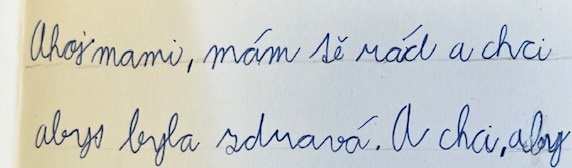 Ahoj mami, mám tě rád a chci
abys byla zdravá. A chci, aby